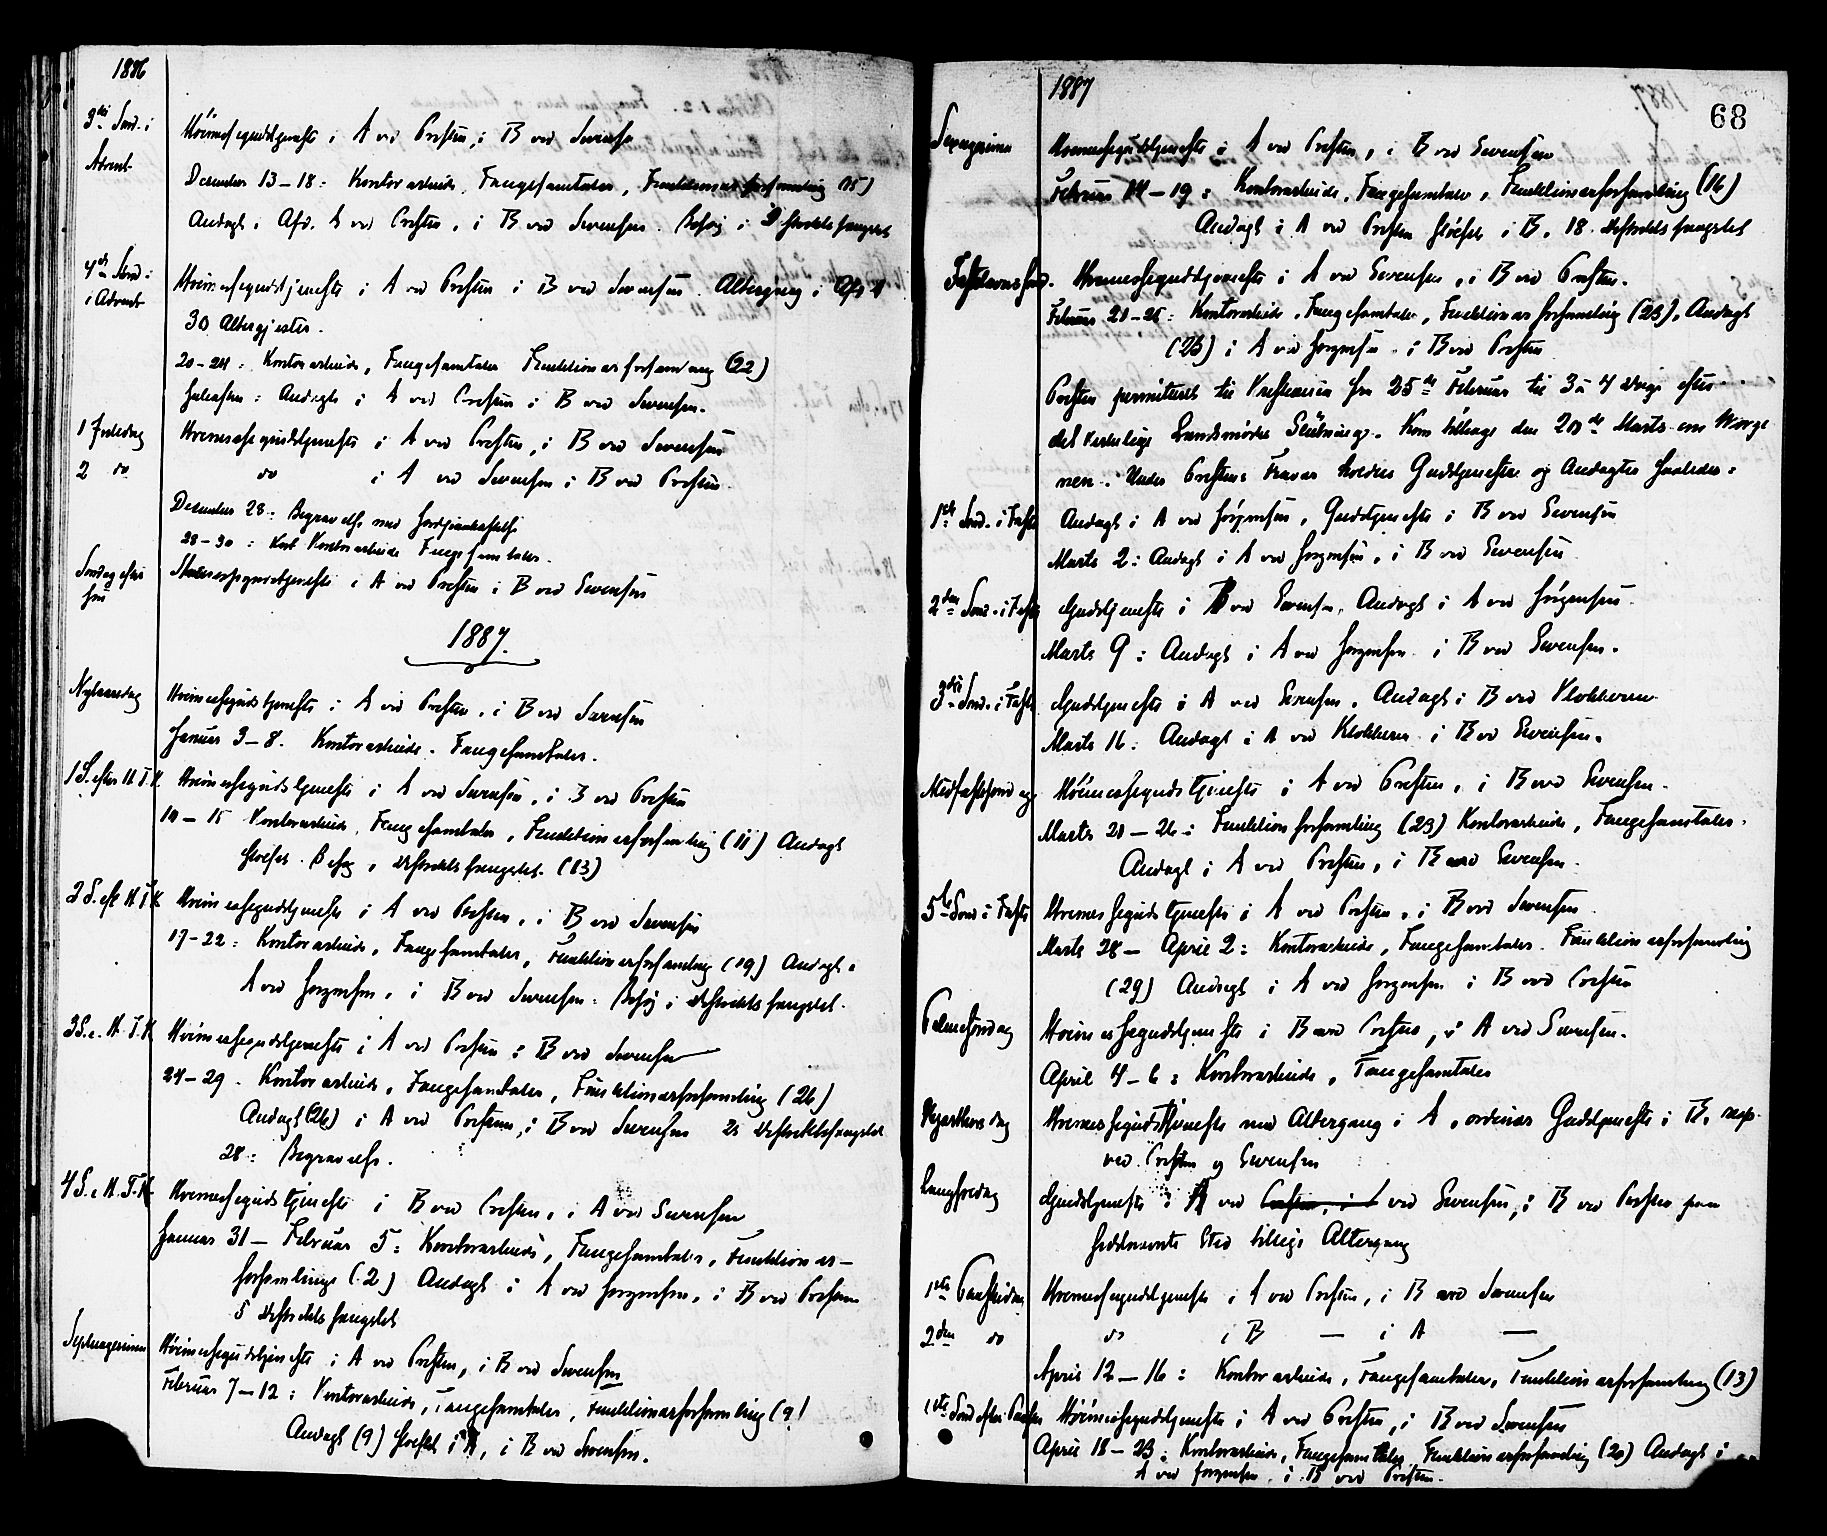 1886
3die Sønd. i Advent
Høimessegudstjeneste i A ved Præsten, i B ved Svensen
December 13–18: Kontorarbeide, Fangesamtaler, Funktionærforsamling (15)
Andagt i Afd. A ved Præsten, i B ved Svensen. Besøg i Distriktsfængslet
4de Sønd. i Advent
Høimessegudstjeneste i A ved Præsten i B ved Svensen. Altergang i Afd A
30 Altergjester.
20–24: Kontorarbeide, Fangesamtaler Funktionærforsamling (22)
Juleaften: Andagt i A ved Præsten i B ved Svensen.
1 Juledag
Høimessegudstjeneste i A ved Præsten, i B ved Svensen
2 do
do i A ved Svensen i B ved Præsten.
December 28: Begravelse med Jordpaakastelse
28–30: Kontorarbeide Fangesamtaler.
Søndag efter Jul
Høimessegudstjeneste i A ved Præsten i B ved Svensen
1887.
Nytaarsdag
Høimessegudstjeneste i A ved Præsten, i B ved Svensen
Januar 3–8. Kontorarbeide. Fangesamtaler.
1 S. efter H. T. K.
Høimessegudstjeneste i A ved Svensen, i B ved Præsten
10–15 Kontorarbeide, Fangesamtaler, Funktionærforsamling (11) Andagt
Besøg i Distriktsfængslet. (13)
2 S. eft H. T. K.
Høimessegudstjeneste i A ved Præsten, i B ved Svensen
17–22: Kontorarbeide, Fangesamtaler, Funktionærforsamling (19) Andagt i
A ved Jørgensen, i B ved Svensen. Besøg i Distriktsfængslet.
3 S. e. H. T. K.
Høimessegudstjeneste i A ved Præsten i B ved Svensen
24–29. Kontorarbeide, Fangesamtaler, Funktionærforsamling (26)
Andagt (26) i A ved Præsten, i B ved Svensen Distriktsfængslet
28: Begravelse.
4 S. e. H. T. K.
Høimessegudstjeneste i B ved Præsten, i A ved Svensen
Januar 31 – Februar 5: Kontorarbeide, Fangesamtaler, Funktionær–
forsamling (2) Andagt i A ved Jørgensen, i B ved Præsten
5 Distriktsfængslet
Septuagesima
Høimessegudstjeneste i A ved Præsten, i B ved Svensen
Februar 7–12: Kontorarbeide, Fangesamtaler, Funktionærforsamling (9)
Andagt (9) i A, i B ved Svensen.
1887
68
Sexagesima
Høimessegudstjeneste i A ved Præsten, i B ved Svensen
Februar 14–19: Kontorarbeide, Fangesamtaler, Funktionærforsamling (16)
Andagt i A ved Præsten i B. 18 Distriktsfængslet
Fastelavnssønd.
Høimessegudstjeneste i A ved Svensen, i B ved Præsten.
Februar 21–26: Kontorarbeide, Fangesamtaler, Funktionærforsamling (23), Andagt
(23) i A ved Jørgensen i B ved Præsten
Præsten permitteret til fra 25de Februar til 3 à 4 Dage efter
det Slutning. Kom tilbage den 20de Marts om Morge-
nen. Under Præstens Fravær holdtes Gudstjenester og Andagter saaledes:
1ste Sønd. i Faste
Andagt i A ved Jørgensen, Gudstjeneste i B ved Svensen
Marts 2: Andagt i A ved Jørgensen, i B ved Svensen
2den Sønd. i Faste
Gudstjeneste i B ved Svensen, Andagt i A ved Jørgensen.
Marts 9: Andagt i A ved Jørgensen i B ved Svensen.
3die Sønd. i Faste
Gudstjeneste i A ved Svensen, Andagt i B ved Klokkeren
Marts 16: Andagt i A ved Klokkeren i B ved Svensen.
Midfastesøndag
Høimessegudstjeneste i A ved Præsten, i B ved Svensen.
Marts 21–26: Funktionærforsamling (23) Kontorarbeide, Fangesamtaler.
Andagt i A ved Præsten, i B ved Svensen.
5te Sønd i Faste
Høimessegudstjeneste i A ved Præsten, i B ved Svensen
Marts 28 – April 2: Kontorarbeide, Fangesamtaler. Funktionærforsamling
(29) Andagt i A ved Jørgensen i B ved Præsten
Palmesøndag
Høimessegudstjeneste i B ved Præsten, i A ved Svensen.
April 4–6: Kontorarbeide, Fangesamtaler
Skjærthorsdag
Høimessegudstjeneste med Altergang i A, ordinær Gudstjeneste i B, resp.
ved Præsten og Svensen
Langfredag
Gudstjeneste i A ved Præsten, i B ved Svensen, i B ved Præsten paa
sidstnævnte Sted tillige Altergang
1ste Paaskedag
Høimessegudstjeneste i A ved Præsten, i B ved Svensen
2den do
do i B — i A —
April 12–16: Kontorarbeide, Fangesamtaler, Funktionærforsamling (13)
1ste Sønd efter Paaske
Høimessegudstjeneste i A ved Præsten, i B ved Svensen
April 18–23: Kontorarbeide, Fangesamtaler, Funktionærforsamling (20) Andagt i
A ved Jørgensen, i B ved Præsten.